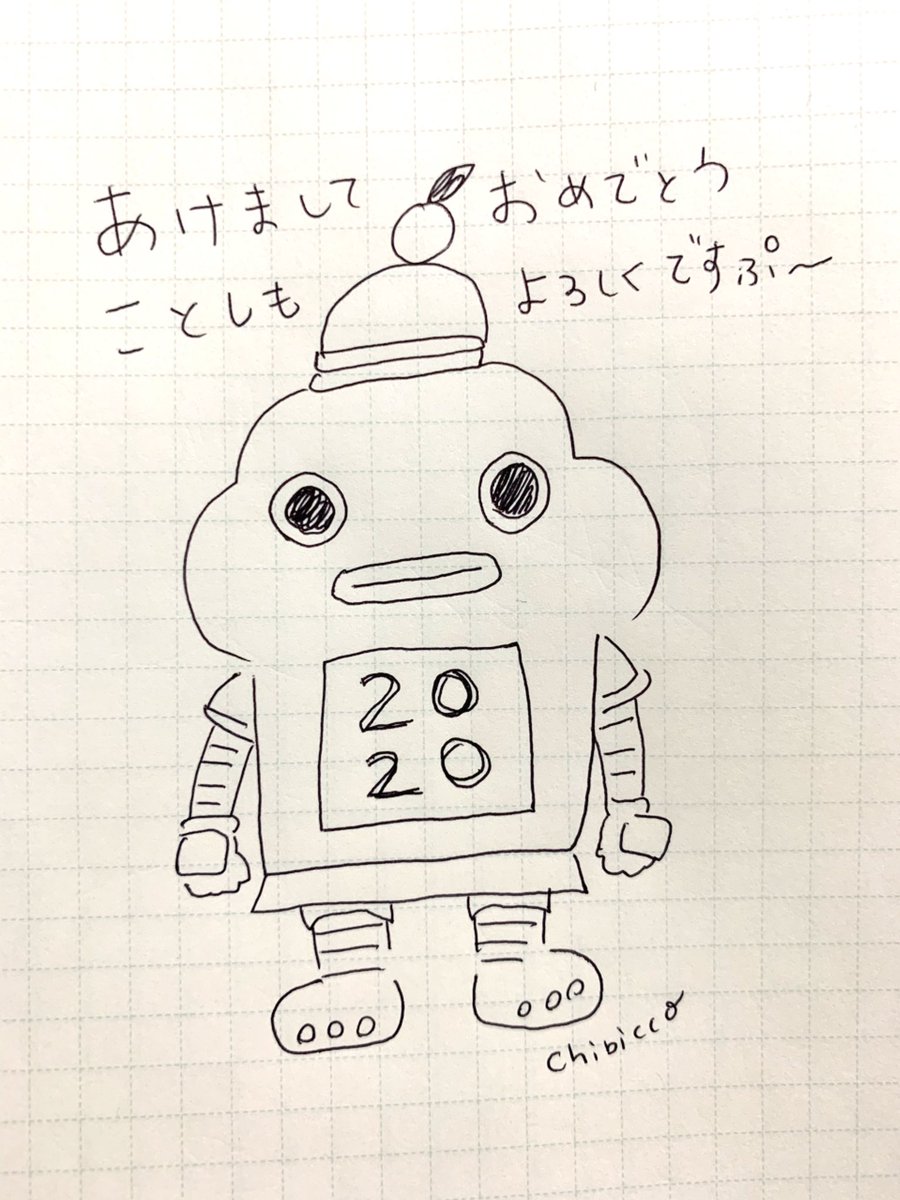 あけまして おめでとう
ことしも よろしくですぷ〜
20
20
chibicco